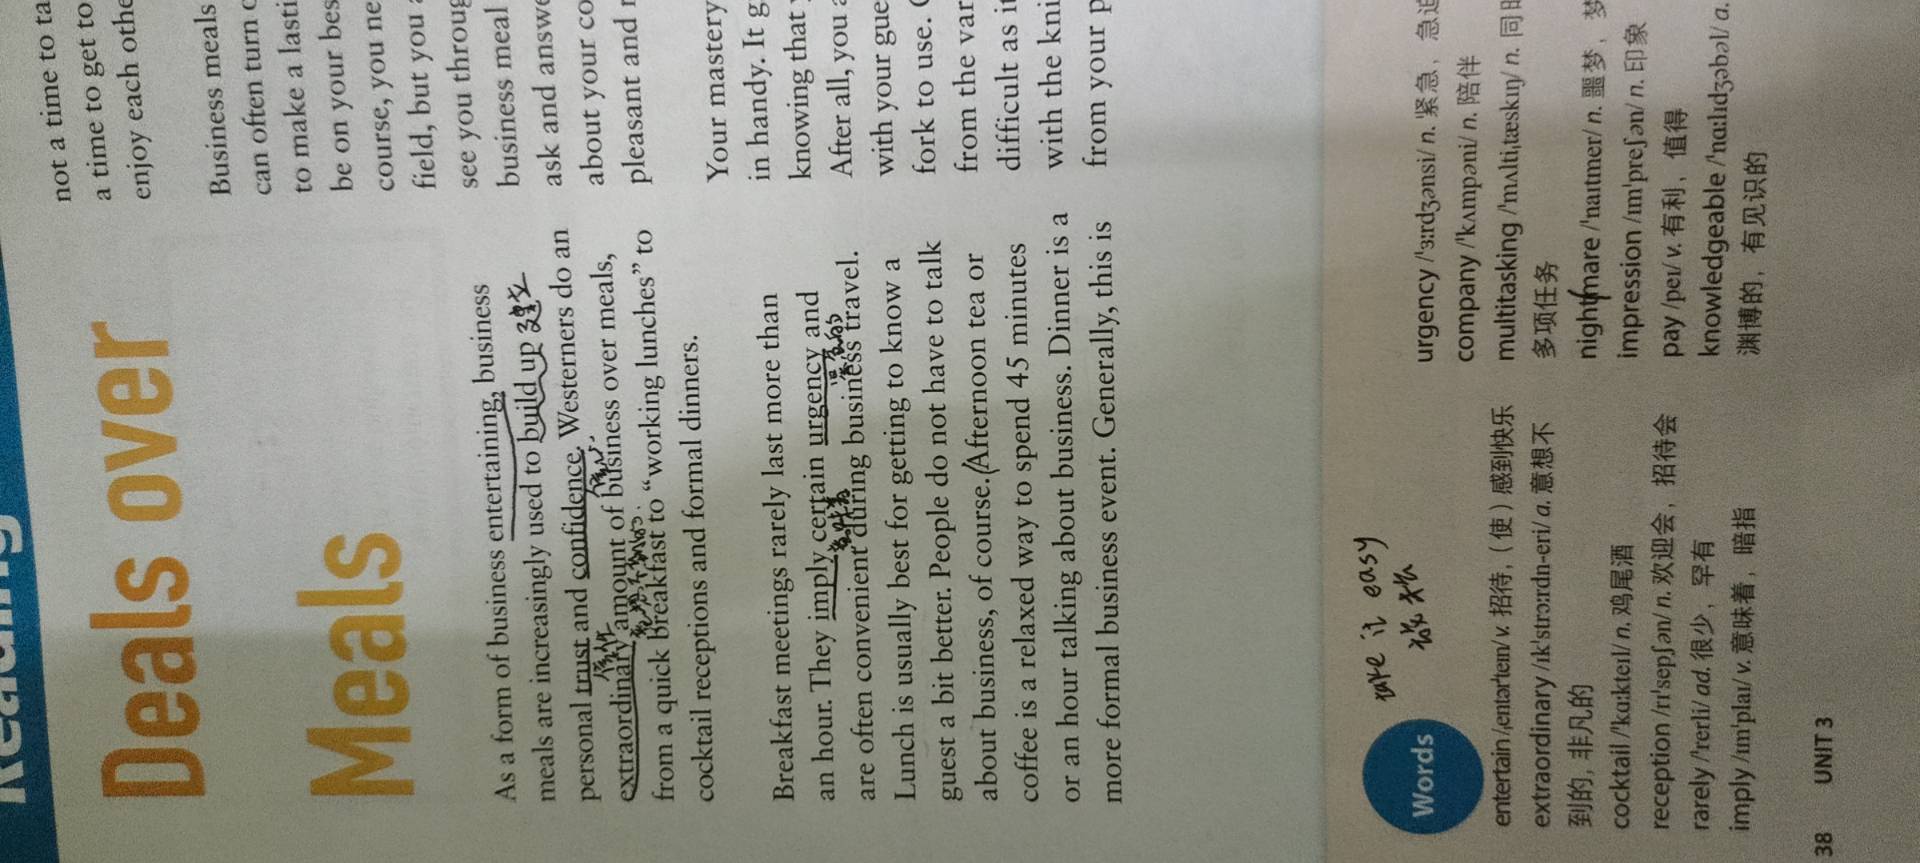 Reading
Deals over
Meals
As a form of business entertaining, business
meals are increasingly used to build up 建立
personal trust and confidence. Westerners do an
信任 信心
extraordinary amount of business over meals,
from a quick breakfast to “working lunches” to
cocktail receptions and formal dinners.
Breakfast meetings rarely last more than
an hour. They imply certain urgency and
意味着
are often convenient during business travel.
Lunch is usually best for getting to know a
guest a bit better. People do not have to talk
about business, of course. (Afternoon tea or
coffee is a relaxed way to spend 45 minutes
or an hour talking about business. Dinner is a
more formal business event. Generally, this is
not a time to ta
a time to get to
enjoy each othe
Business meals
can often turn
to make a lasti
be on your bes
course, you ne
field, but you
see you throug
business meal
ask and answe
about your co
pleasant and
Your mastery
in handy. It g
knowing that
After all, you
with your gue
fork to use.
from the var
difficult as i
with the kni
from your p
Words
take it easy
放松
entertain /ˌentərˈteɪn/ v. 招待，（使）感到快乐
extraordinary /ɪkˈstrɔːrdn-eri/ a. 意想不
到的, 非凡的
cocktail /ˈkɑːkteɪl/ n. 鸡尾酒
reception /rɪˈsepʃən/ n. 欢迎会，招待会
rarely /ˈrerli/ ad. 很少，罕有
imply /ɪmˈplaɪ/ v. 意味着，暗指
urgency /ˈɜːrdʒənsi/ n. 紧急，急迫
company /ˈkʌmpəni/ n. 陪伴
multitasking /ˈmʌltiˌtæskɪŋ/ n. 同时
多项任务
nightmare /ˈnaɪtmer/ n. 噩梦，梦
impression /ɪmˈpreʃən/ n. 印象
pay /peɪ/ v. 有利，值得
knowledgeable /ˈnɑːlɪdʒəbəl/ a.
渊博的，有见识的
38 UNIT 3